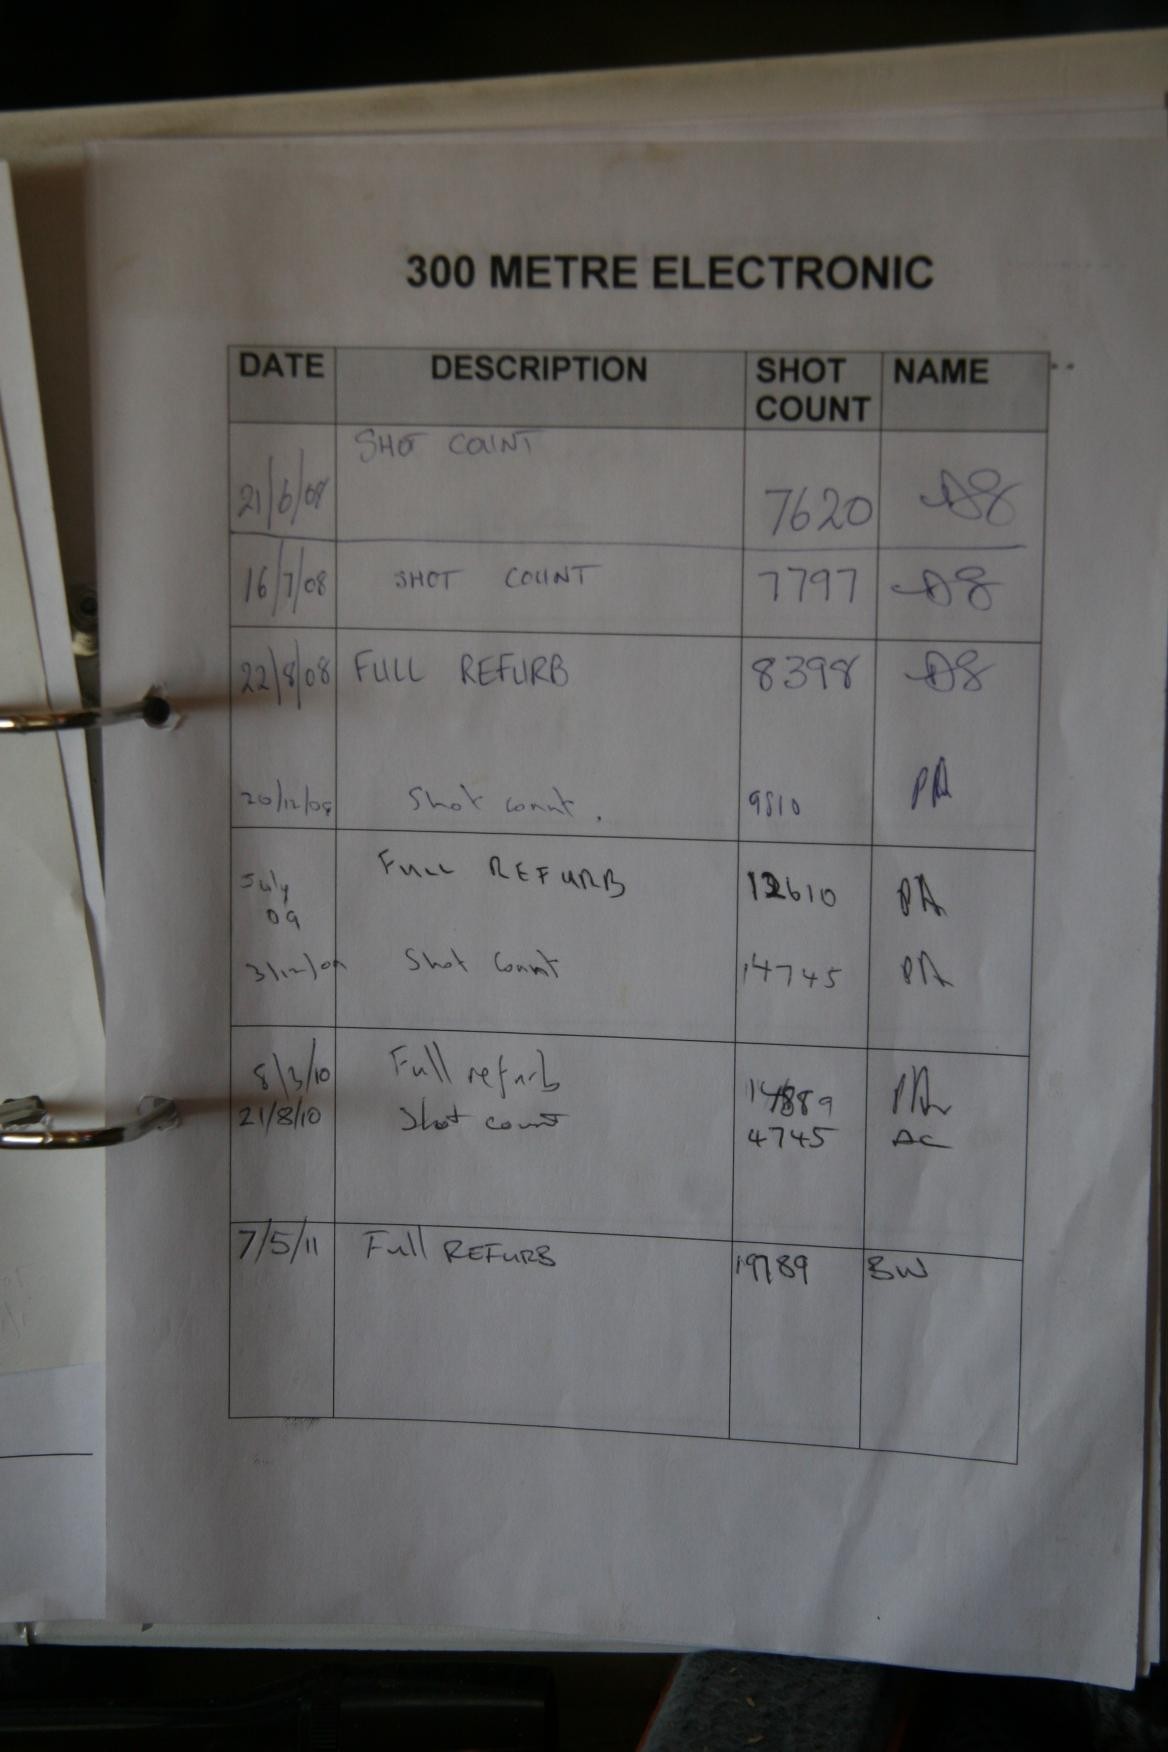 300 METRE ELECTRONIC
DATE DESCRIPTION SHOT COUNT NAME
SHOT COUNT
21/6/08 7620
16/7/08 SHOT COUNT 7797
22/8/08 FULL REFURB 8398
20/12/08 Shot count. 9810 PA
July 09 FULL REFURB 12610 PA
31/12/09 Shot count 14745 PA
8/3/10 Full refurb PA
21/8/10 Shot count 4745 AC
7/5/11 Full REFURB 19789 BW